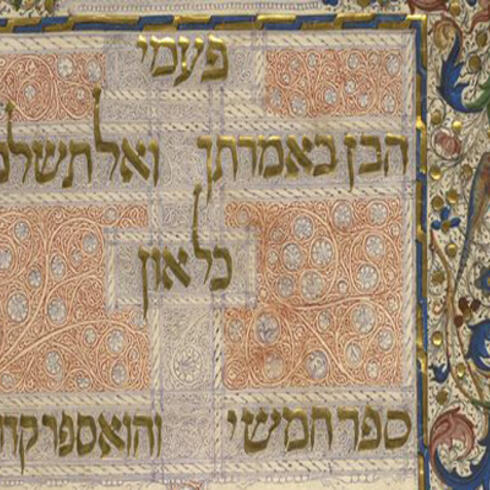 פעמי
הכן באמרתך ואל תשל
כל און
ספר חמשי והוא ספר